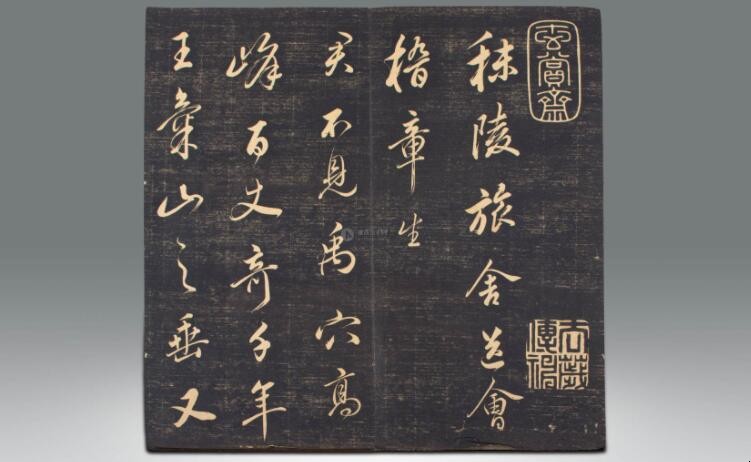 玄賞齋
秣陵旅舍送會
稽章生
君不見禹穴高
峰百丈奇千年
王 山之垂又